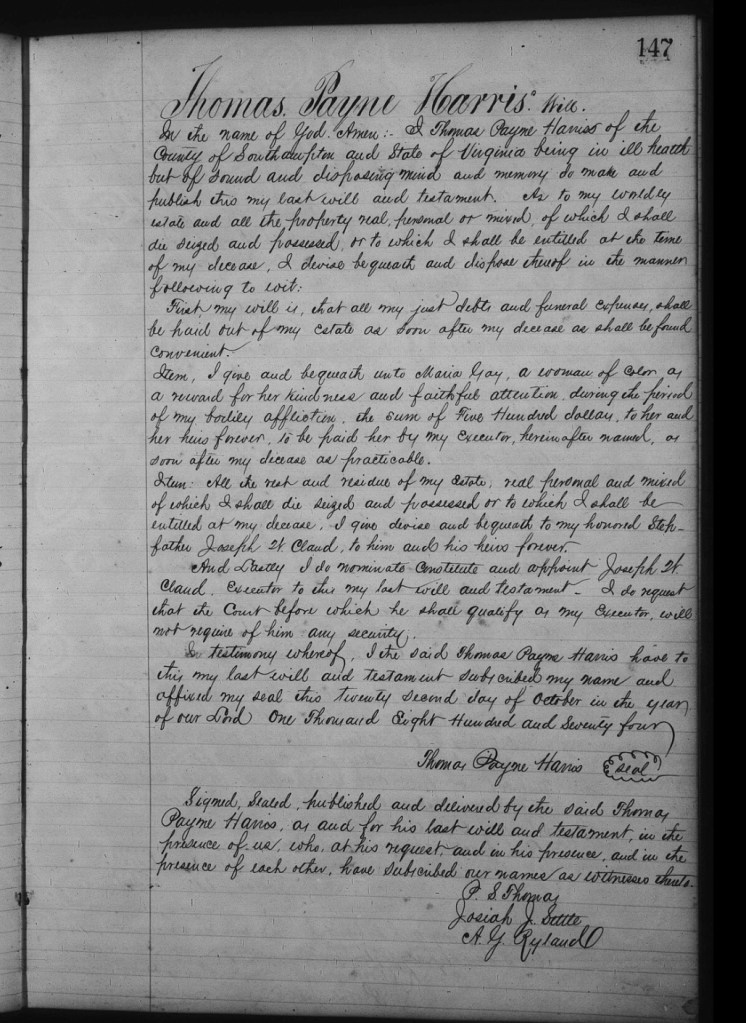 147
Thomas Payne Harris' Will.
In the name of God Amen:- I Thomas Payne Harris of the
County of Southampton and State of Virginia being in ill health
but of sound and disposing mind and memory do make and
publish this my last will and testament. As to my worldly
estate and all the property real, personal or mixed, of which I shall
die seized and possessed, or to which I shall be entitled at the time
of my decease, I devise bequeath and dispose thereof in the manner
following to wit:
First, my will is, that all my just debts and funeral expenses, shall
be paid out of my estate as soon after my decease as shall be found
convenient.
Item, I give and bequeath unto Maria Gay, a woman of color as
a reward for her kindness and faithful attention, during the period
of my bodily affliction, the sum of Five Hundred dollars, to her and
her heirs forever, to be paid her by my Executor, hereinafter named, as
soon after my decease as practicable.
Item: All the rest and residue of my Estate, real personal and mixed
of which I shall die seized and possessed or to which I shall be
entitled at my decease, I give devise and bequeath to my honored Step-
father Joseph W Claud, to him and his heirs forever.
And Lastly I do nominate Constitute and appoint Joseph W
Claud, Executor to this my last will and testament- I do request
that the Court before which he shall qualify as my Executor, will
not require of him any security.
In testimony whereof, I the said Thomas Payne Harris have to
this my last will and testament subscribed my name and
affixed my seal this twenty second day of October in the year
of our Lord One Thousand Eight Hundred and Seventy four
Thomas Payne Harris seal
Signed, Sealed, published and delivered by the said Thomas
Payne Harris, as and for his last will and testament, in the
presence of us, who, at his request, and in his presence, and in the
presence of each other, have subscribed our names as witnesses thereto.
P. S. Thomas
Josiah J. Settle
A. G. Ryland